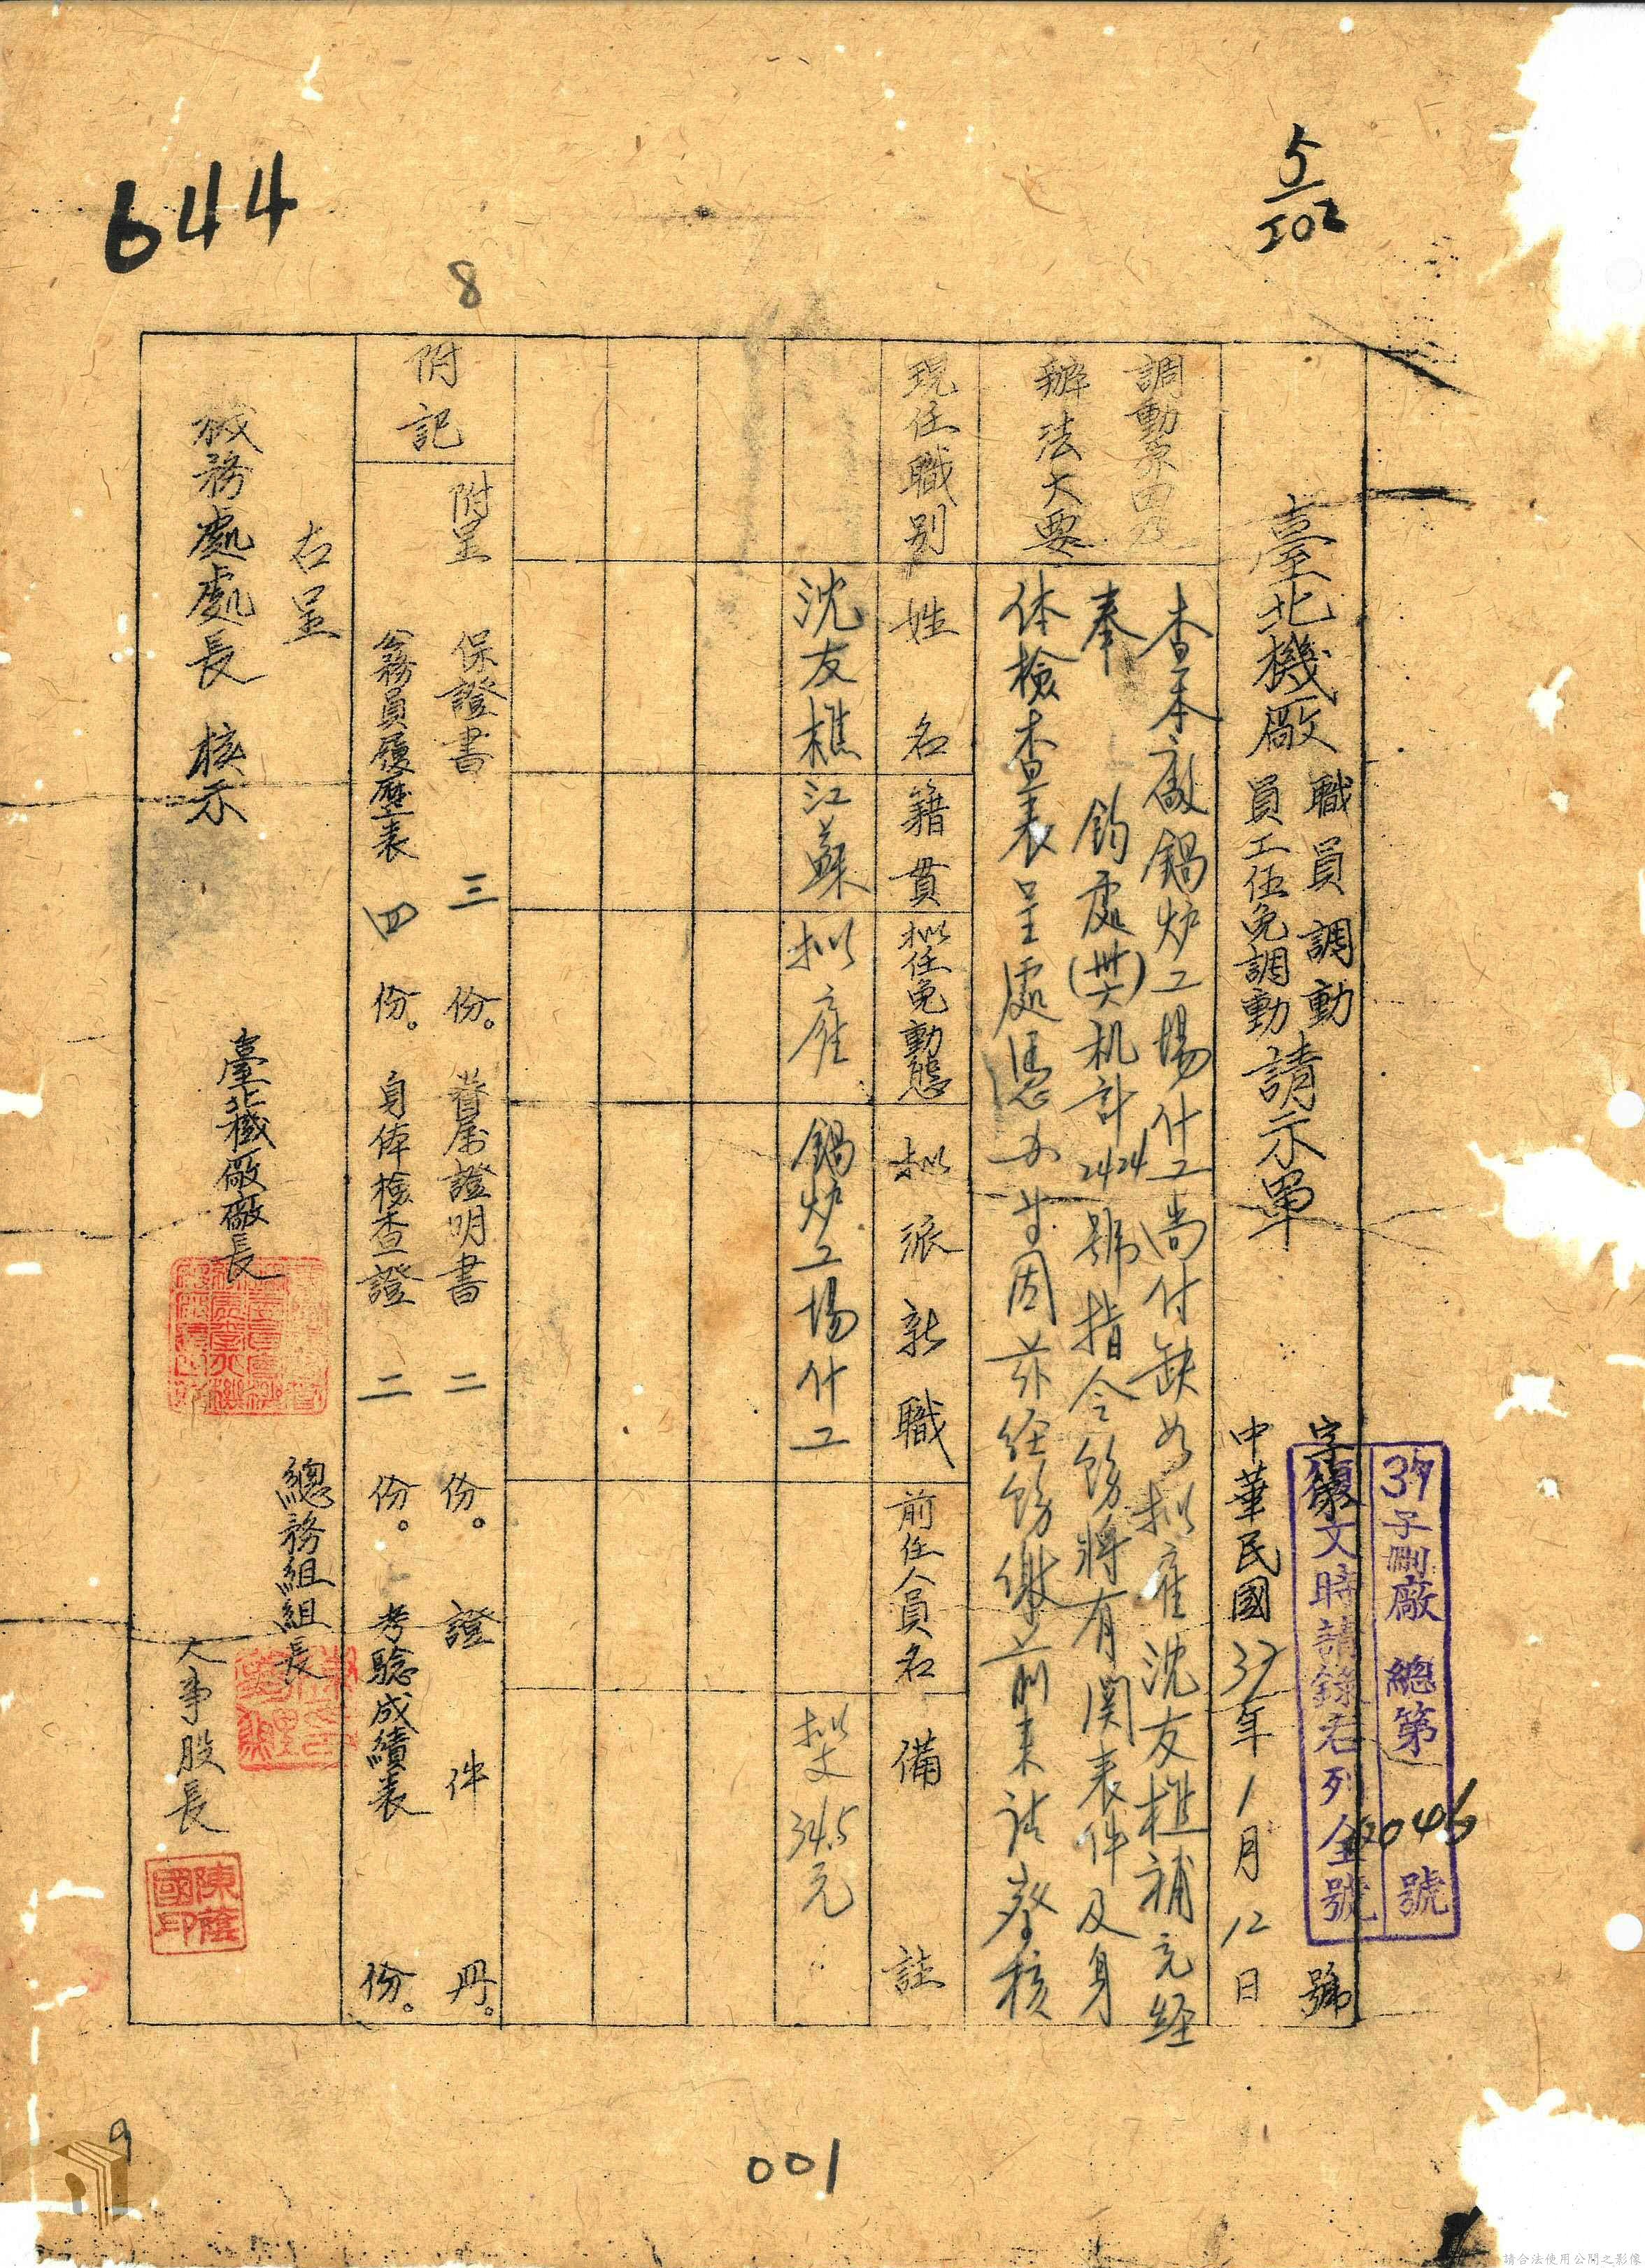 644
5/202
8
臺北機廠
職員調動
員工任免調動
請示單
字第 號
37子刪廠 總第 2046 號
復文時請錄右列全號
中華民國37年1月12日
調動原由及
辦法大要
查本廠鍋炉工場什工尚付缺如拟雇沈友樵補充経
奉 鈞處(卅六)机計2424號指令飭将有関表件及身
体檢查表呈處憑办等因茲経飭繳前来請詧核
現任職別
姓名
籍貫
拟任免動態
拟派新職
前任人員名
備註
沈友樵
江蘇
拟雇
鍋炉工場什工
拟支34.5元
附記
附呈 保證書 三 份。眷屬證明書 二 份。證件 冊。
公務員履歷表 四 份。身体檢查證 二 份。考驗成績表 份。
右呈
機務處處長 核示
臺北機廠廠長
總務組組長
人事股長
陳蔭國印
001
9
請合法使用公開之影像